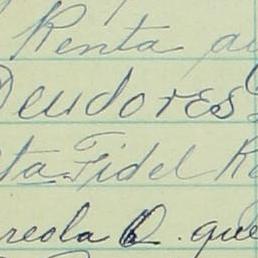 Renta
Deudores
Fidel
reola Q. que